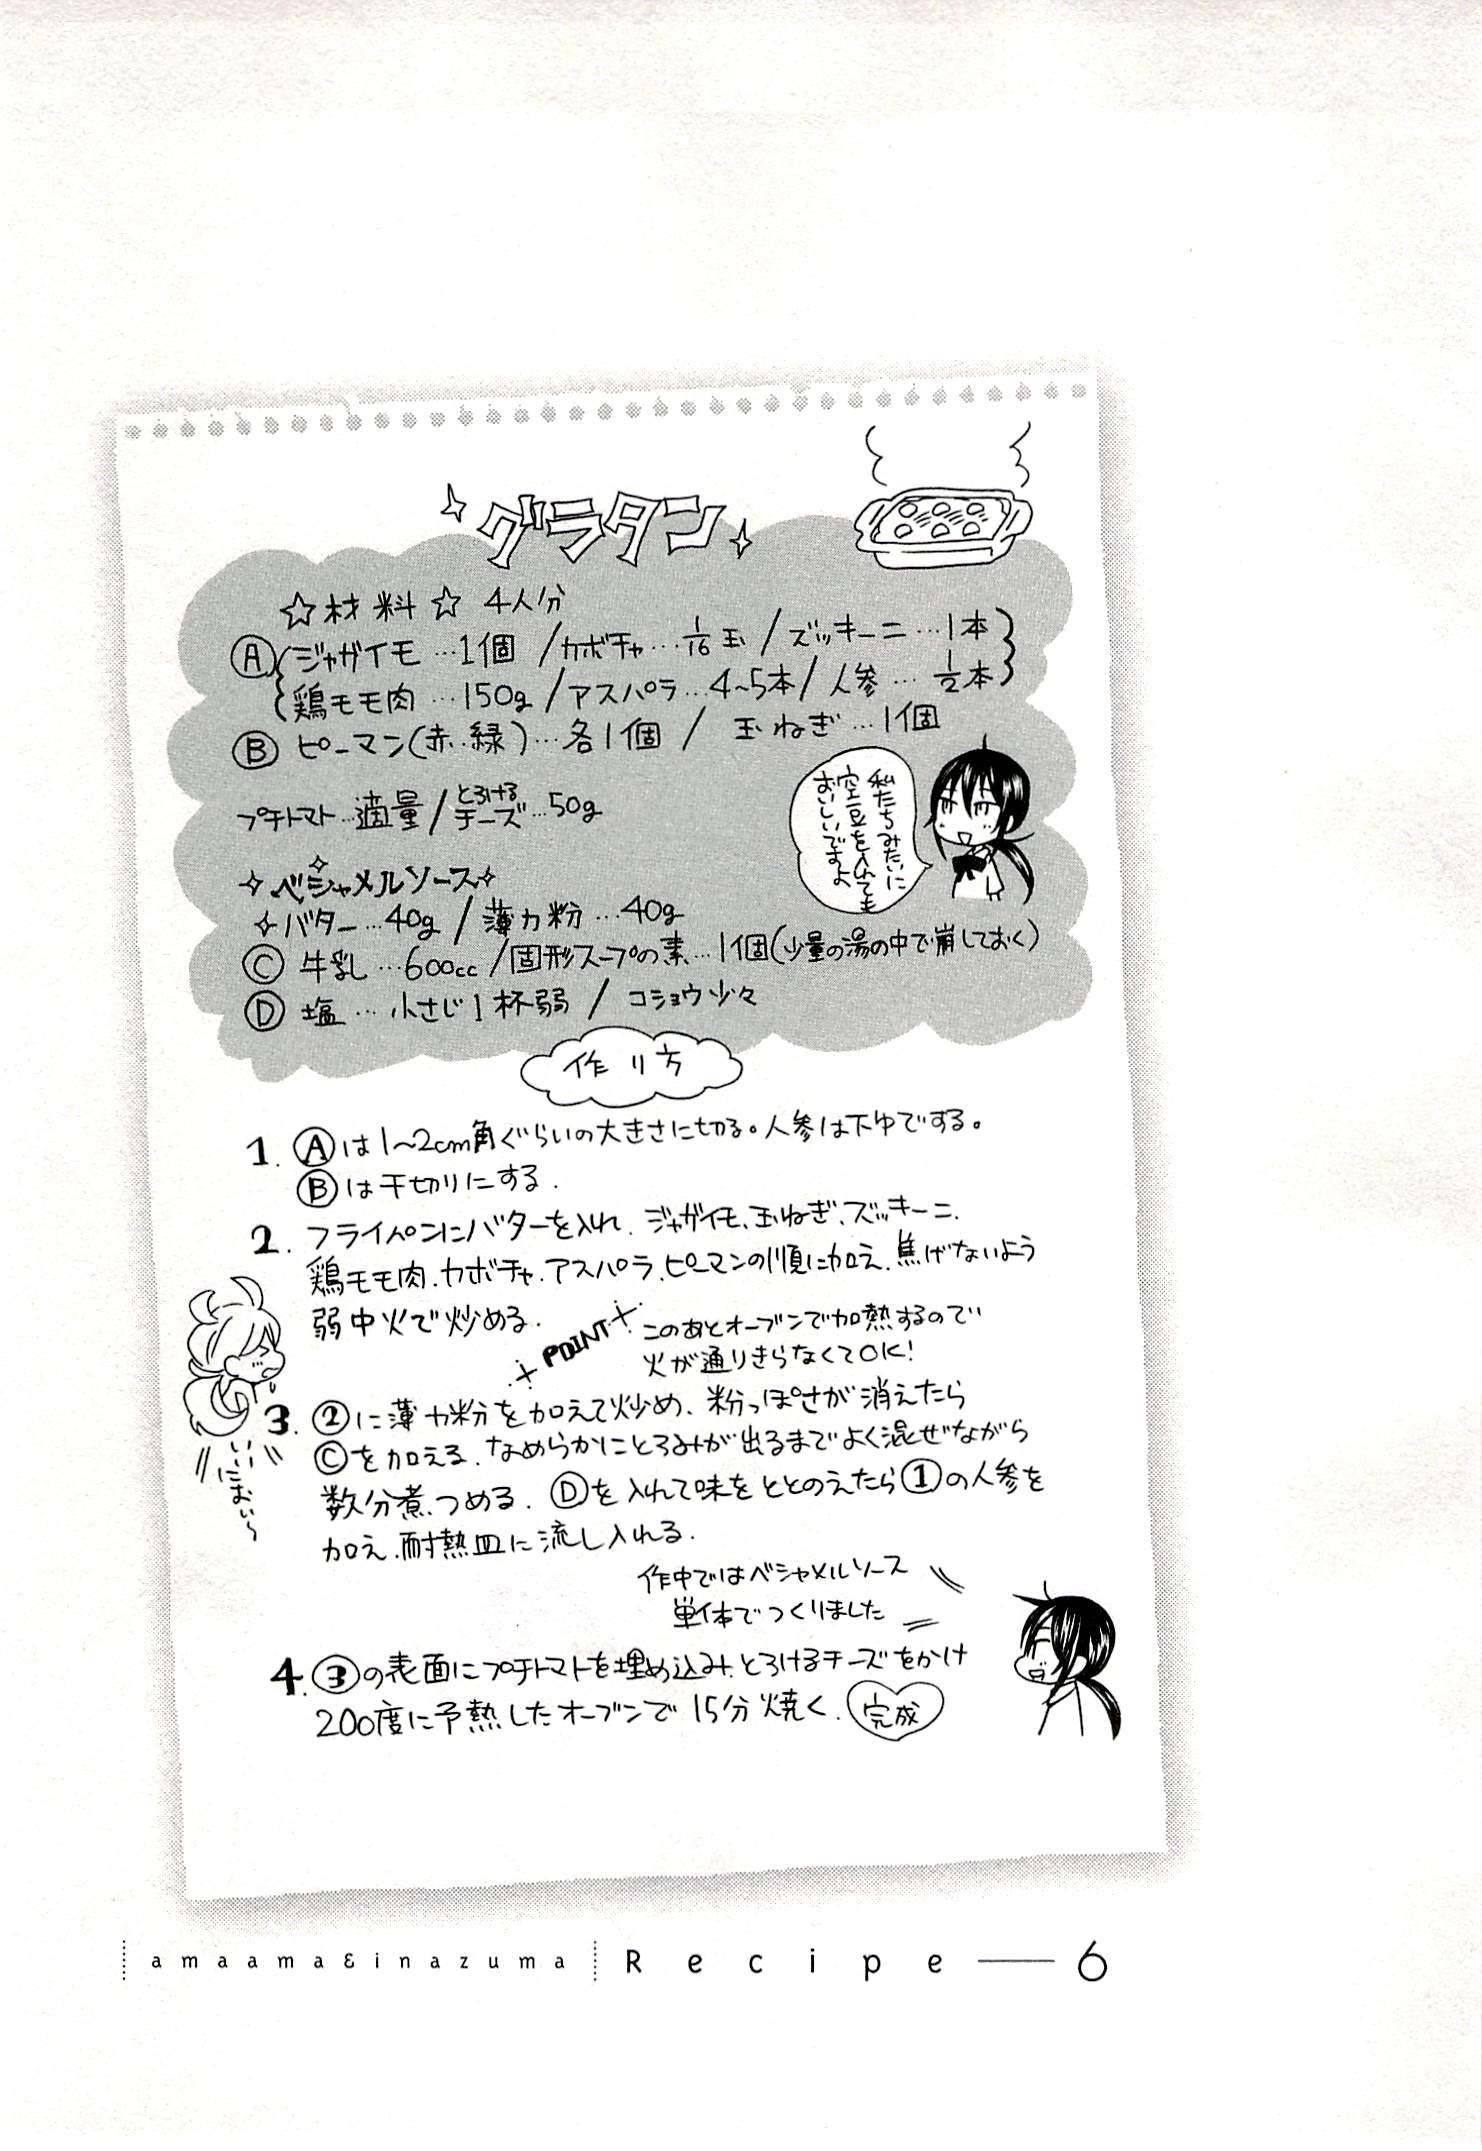 グラタン
☆材料☆ 4人分
Ⓐ(ジャガイモ…1個/カボチャ…1/16玉/ズッキーニ…1本
鶏モモ肉…150g/アスパラ…4~5本/人参…1/2本)
Ⓑ ピーマン(赤・緑)…各1個/玉ねぎ…1個
プチトマト…適量/とろけるチーズ…50g
私たちみたいに
空豆を入れても
おいしいですよ
ベシャメルソース
バター…40g/薄力粉…40g
Ⓒ 牛乳…600cc/固形スープの素…1個(少量の湯の中で崩しておく)
Ⓓ 塩…小さじ1杯弱/コショウ少々
作り方
1. Ⓐは1~2cm角ぐらいの大きさに切る。人参は下ゆでする。
Ⓑは千切りにする.
2. フライパンにバターを入れ、ジャガイモ、玉ねぎ、ズッキーニ、
鶏モモ肉、カボチャ、アスパラ、ピーマンの順に加え、焦げないよう
弱中火で炒める.
POINT
このあとオーブンで加熱するので
火が通りきらなくてOK!
3. ②に薄力粉を加えて炒め、粉っぽさが消えたら
Ⓒを加える.なめらかにとろみが出るまでよく混ぜながら
数分煮つめる. Ⓓを入れて味をととのえたら①の人参を
加え、耐熱皿に流し入れる.
いいにおい〜
作中ではベシャメルソース
単体でつくりました
4. ③の表面にプチトマトを埋め込み、とろけるチーズをかけ
200度に予熱したオーブンで15分焼く. 完成
amaama&inazuma Recipe—6